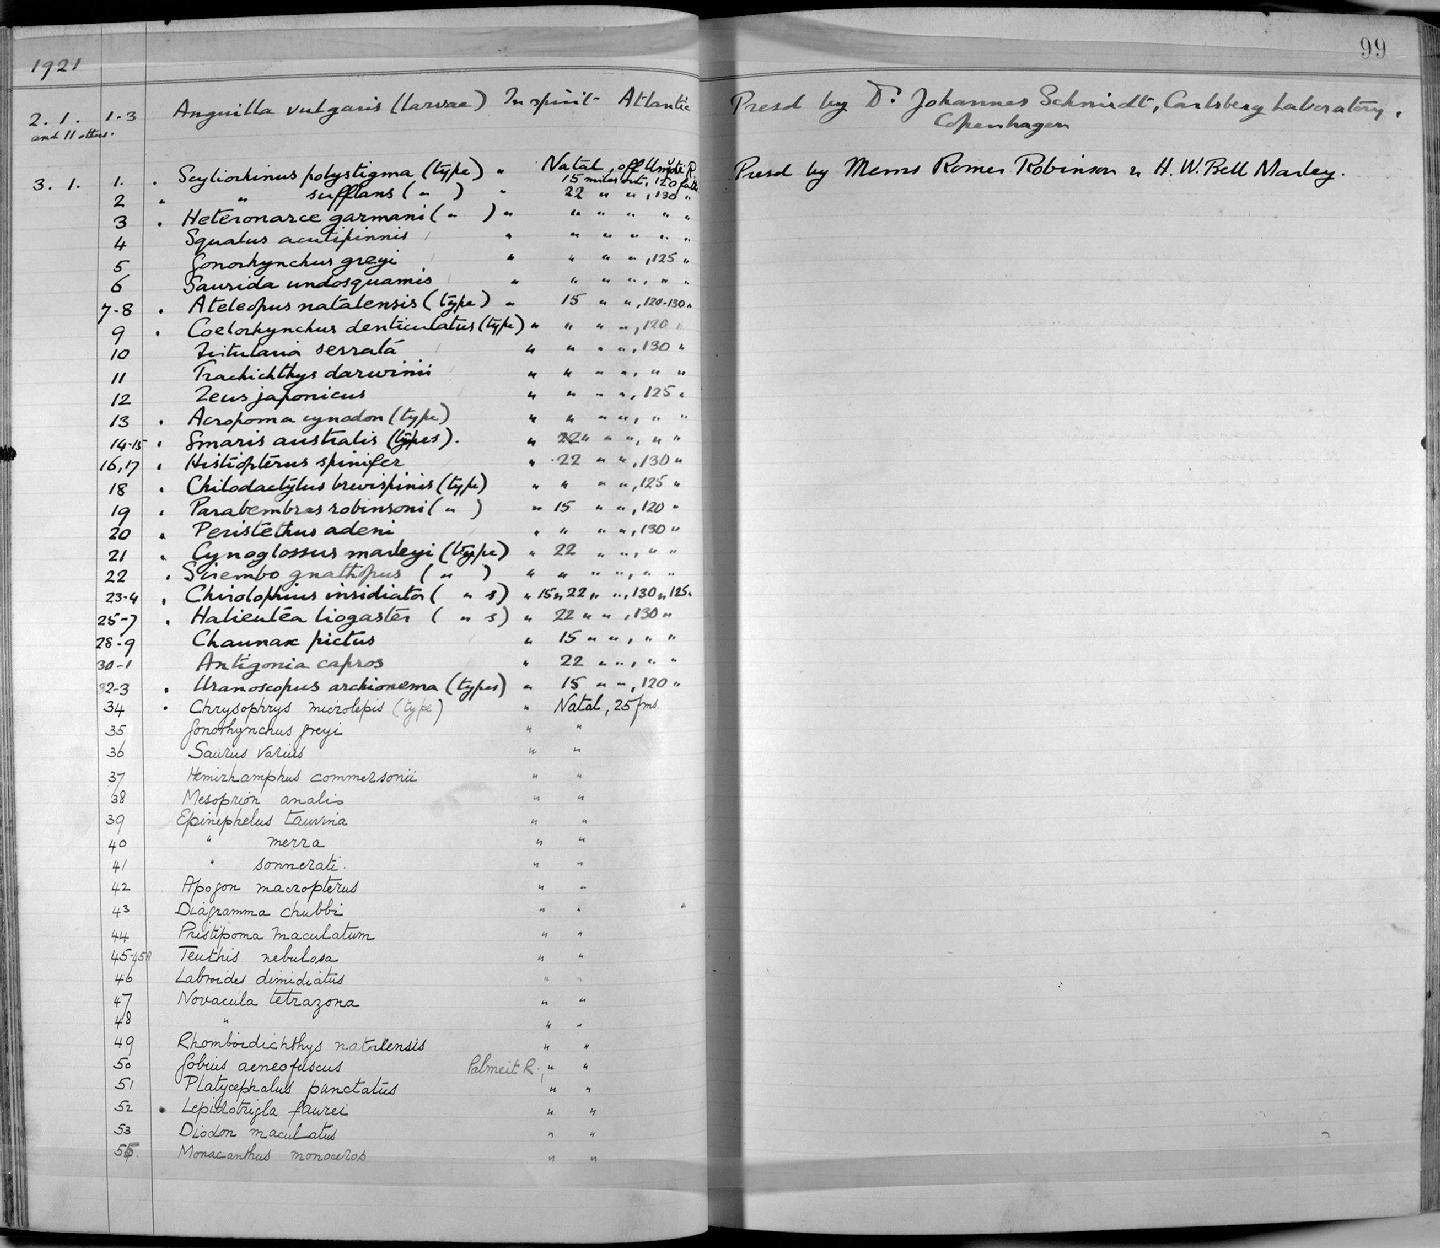 99
1921
2. 1. 1-3 Anguilla vulgaris (larvae) In spirit Atlantic Presd by Dr. Johannes Schmidt, Carlsberg Laboratory,
and 11 others. Copenhagen
3. 1. 1. . Scyliorhinus polystigma (type) " Natal, off Umvoti R. Presd by Messrs Romer Robinson & H. W. Bell Marley.
15 miles out, 120 faths
2 " " sufflans ( " ) " 22 " " , 130 "
3 . Heteronarce garmani ( " ) " " " " " "
4 Squalus acutipinnis " " " " " "
5 Gonorhynchus greyi " " " " , 125 "
6 Saurida undosquamis " " " " , " "
7-8 . Ateleopus natalensis (type) " 15 " " , 120-130 "
9 . Coelorhynchus denticulatus (type) " " " " , 120 "
10 Fistularia serrata " " " " , 130 "
11 Trachichthys darwinii " " " " , " "
12 Zeus japonicus " " " " , 125 "
13 . Acropoma cynodon (type) " " " " , " "
14-15 . Smaris australis (types). " 22 " " " , " "
16,17 . Histiopterus spinifer " 22 " " , 130 "
18 . Chilodactylus brevispinis (type) " " " " , 125 "
19 . Parabembras robinsoni ( " ) " 15 " " , 120 "
20 . Peristethus adeni " " " " , 130 "
21 . Cynoglossus marleyi (type) " 22 " " , " "
22 . Sirembo gnathopus ( " ) " " " " , " "
23-4 . Chirolophius insidiator ( " s) " 15 " 22 " " , 130 " 125 "
25-7 . Halieutea liogaster ( " s) " 22 " " , 130 "
28-9 Chaunax pictus " 15 " " , " "
30-1 Antigonia capros " 22 " " , " "
32-3 . Uranoscopus archionema (types) " 15 " " , 120 "
34 . Chrysophrys microlepis (type) " Natal, 25 fms
35 Gonorhynchus greyi " "
36 Saurus varius " "
37 Hemirhamphus commersonii " "
38 Mesoprion analis " "
39 Epinephelus tauvina " "
40 " merra " "
41 " sonnerati. " "
42 Apogon macropterus " "
43 Diagramma chubbi " "
44 Pristipoma maculatum " "
45-45A Teuthis nebulosa " "
46 Labroides dimidiatus " "
47 Novacula tetrazona " "
48 " " "
49 Rhomboidichthys natalensis " "
50 Gobius aeneofuscus Palmeit R., " "
51 Platycephalus punctatus " "
52 . Lepidotrigla faurei " "
53 Diodon maculatus " "
Monacanthus monoceros " "